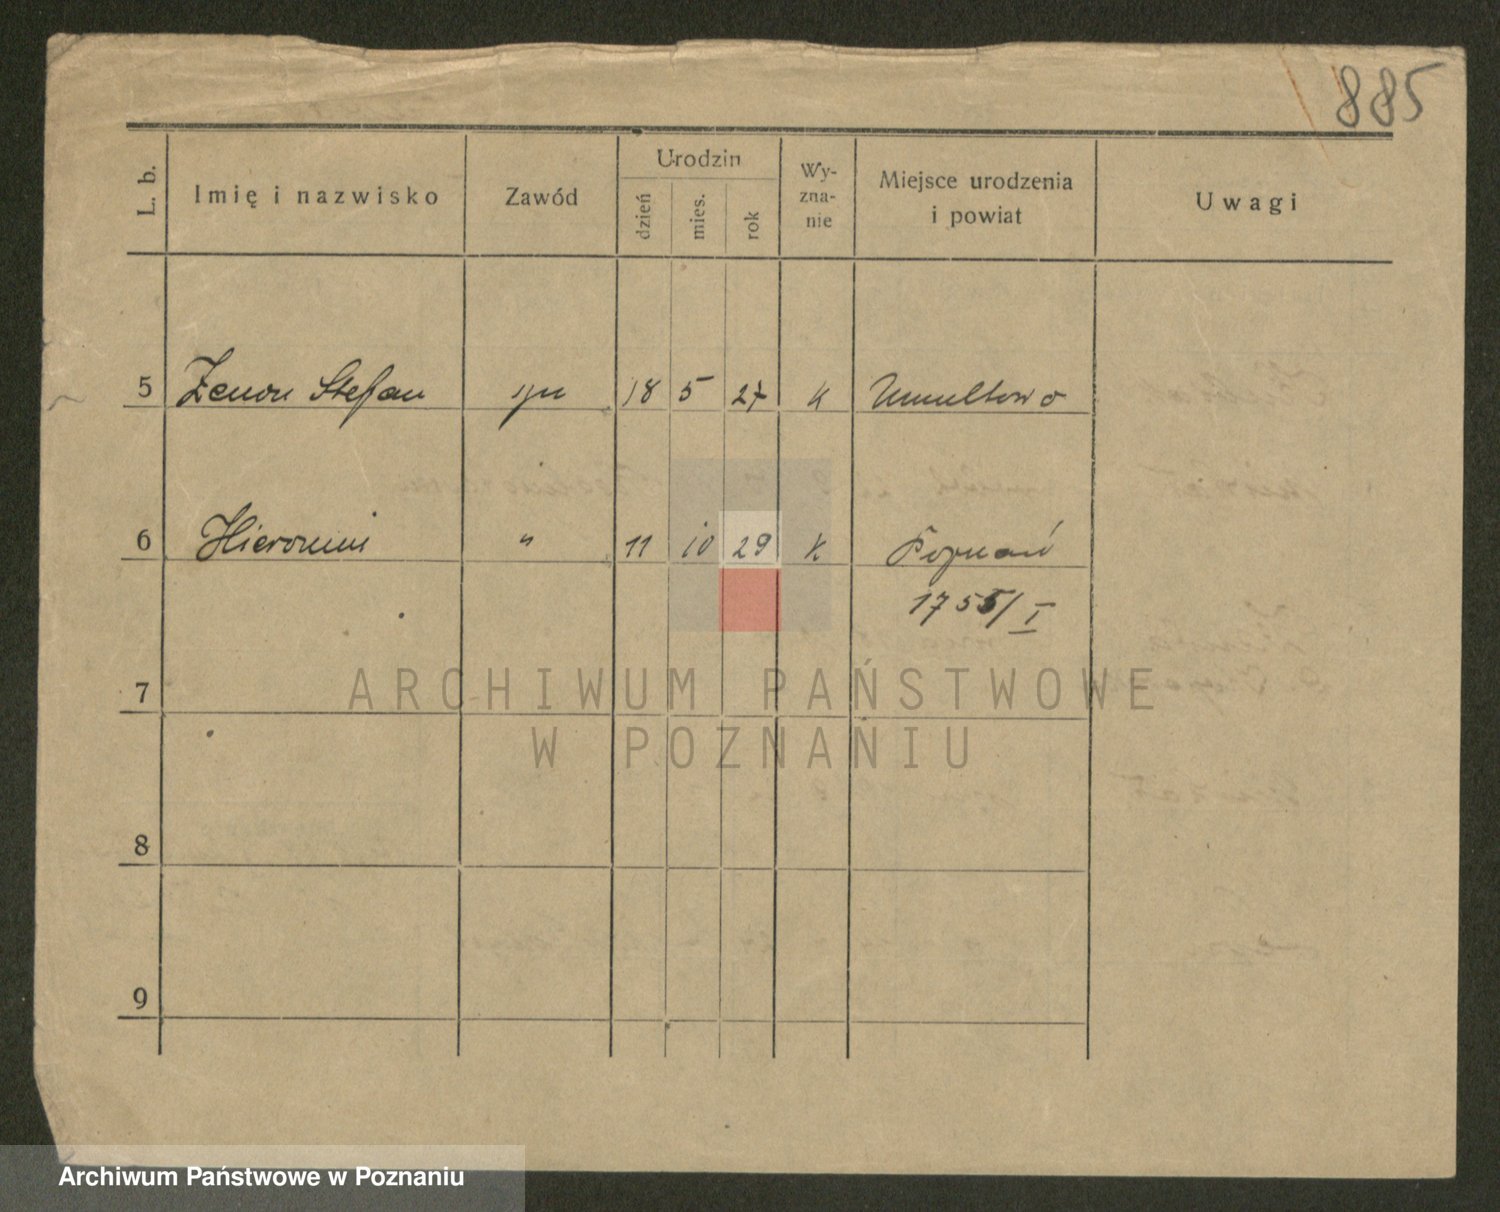 885
L. b. Imię i nazwisko Zawód Urodzin dzień mies. rok Wy-zna-nie Miejsce urodzenia i powiat Uwagi
5 Zenon Stefan syn 18 5 27 k Umultowo
6 Hieronim " 11 10 29 k Poznań
1755/I
7
ARCHIWUM PAŃSTWOWE
W POZNANIU
8
9
Archiwum Państwowe w Poznaniu